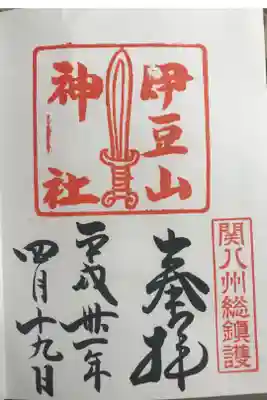 伊豆山
神社
関八州総鎮護
奉拝
平成卅一年
四月十九日